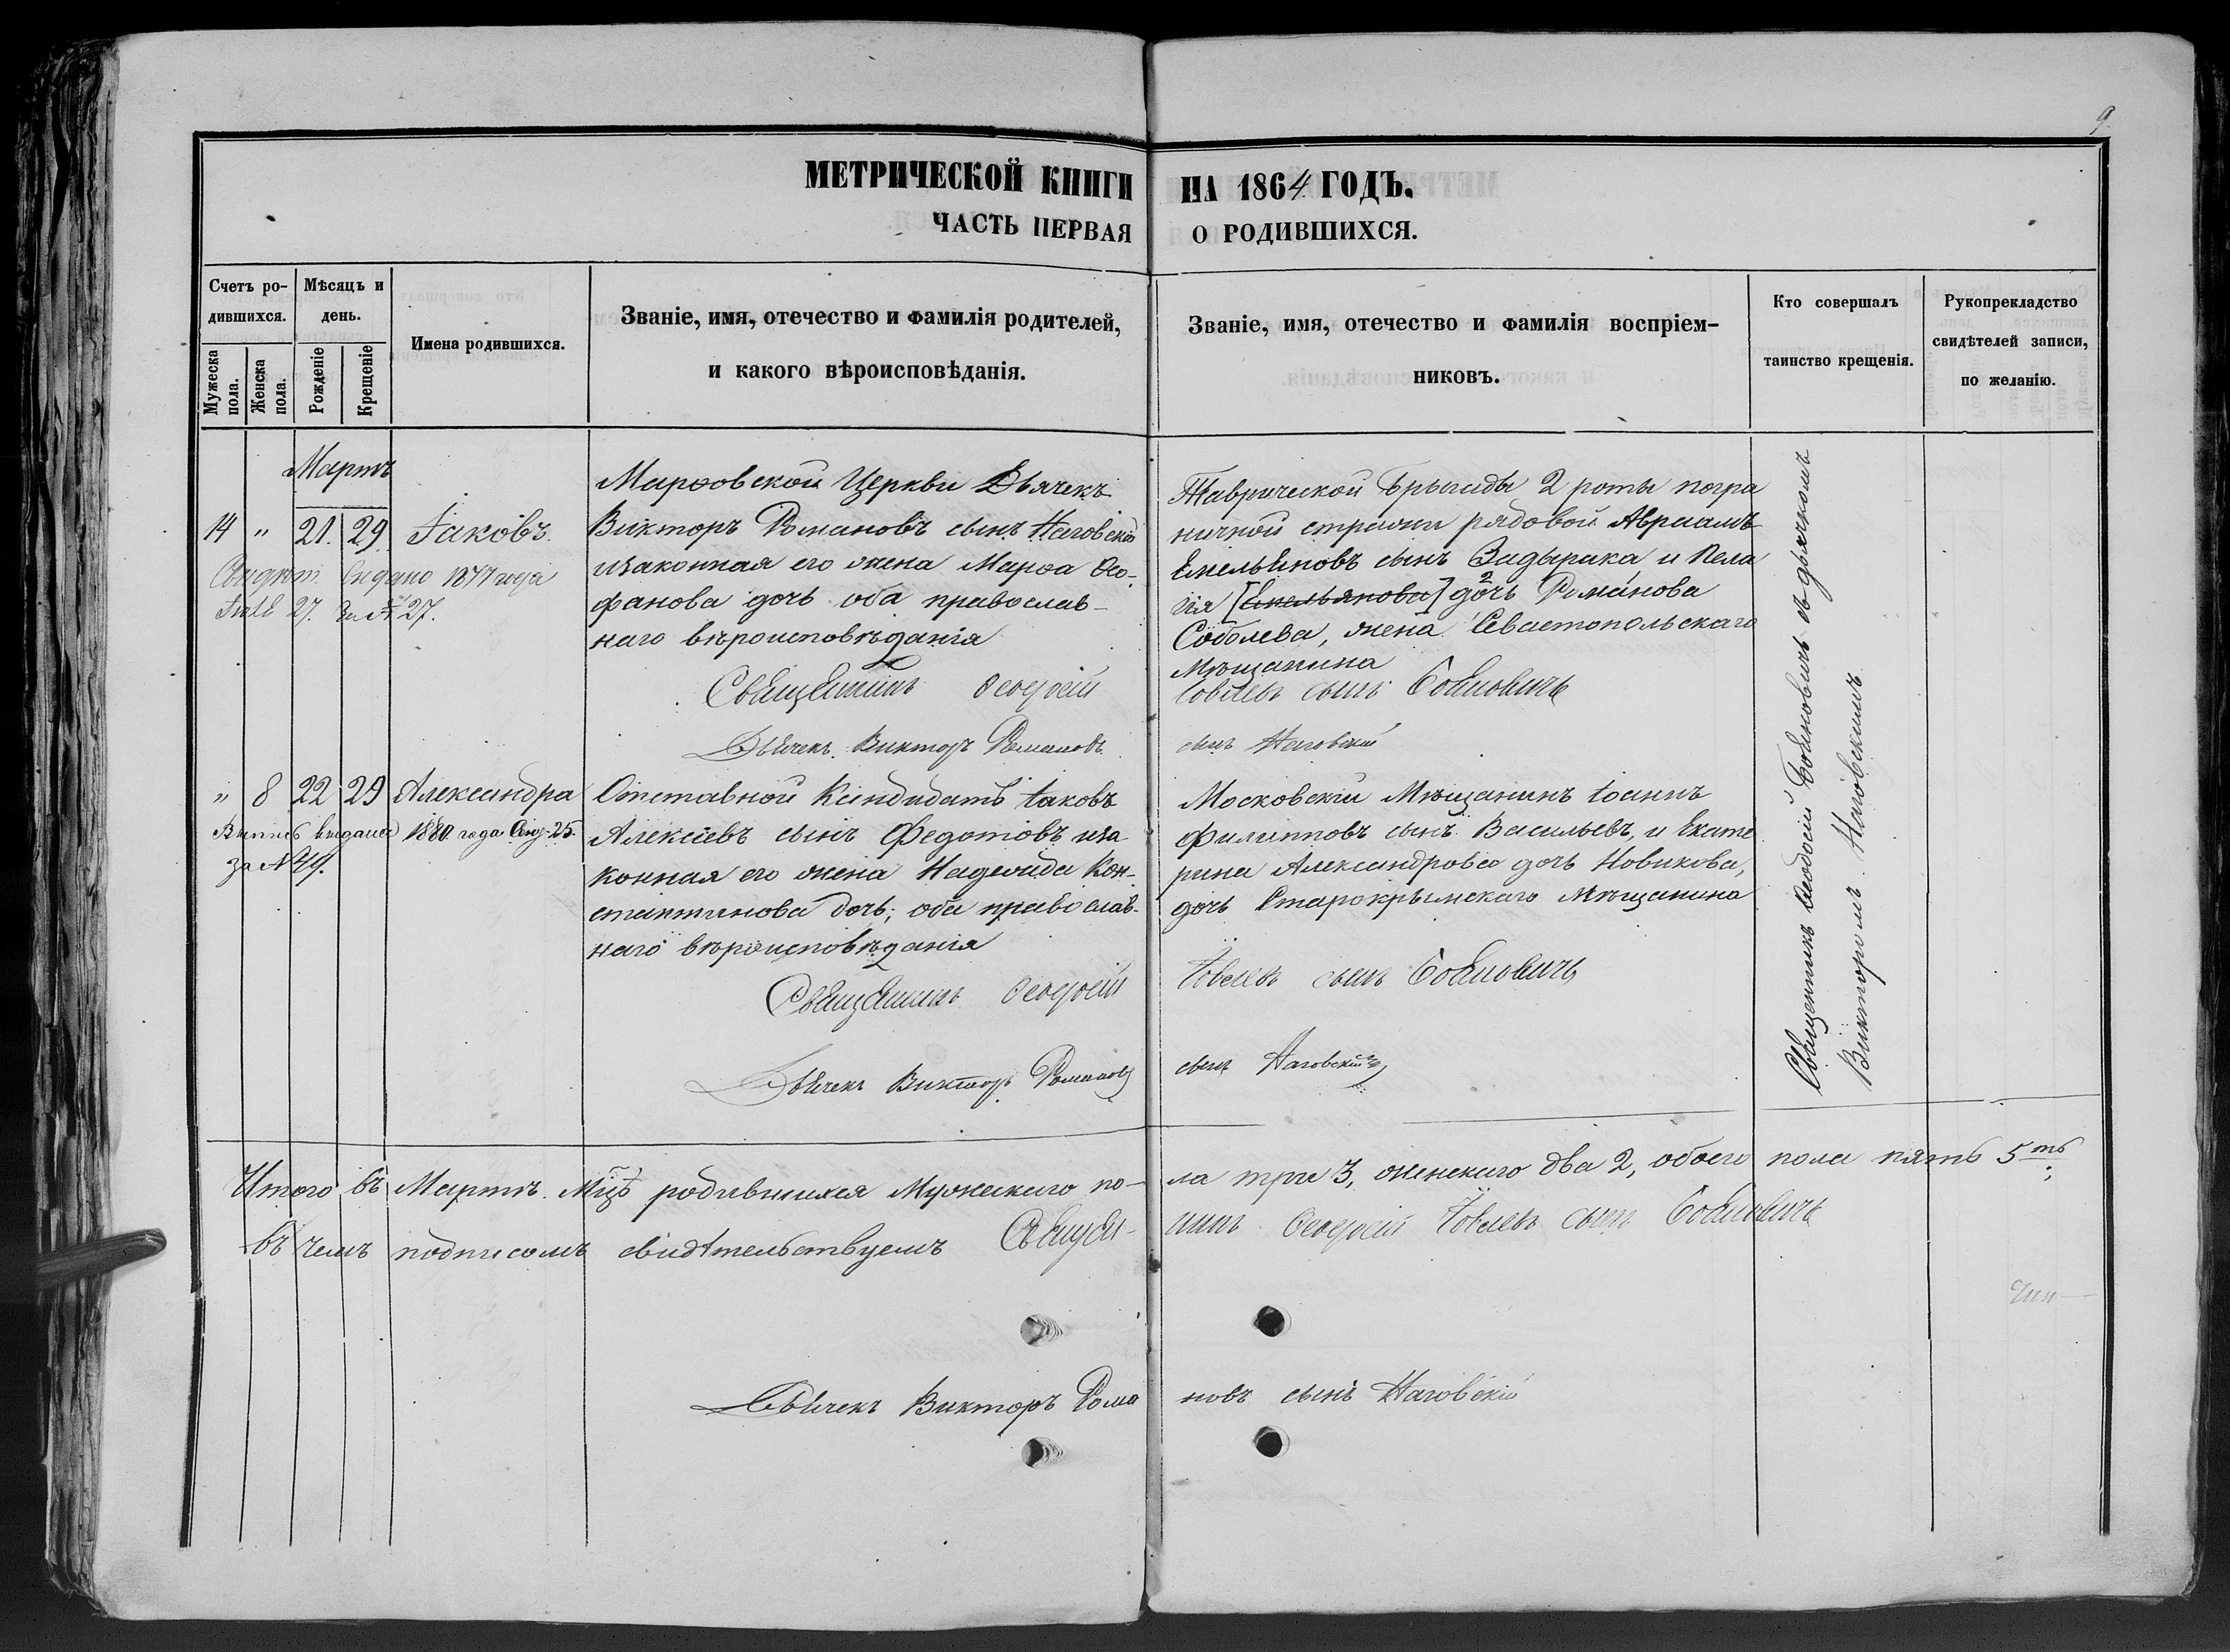 9.
МЕТРИЧЕСКОЙ КНИГИ НА 1864 ГОДЪ.
ЧАСТЬ ПЕРВАЯ О РОДИВШИХСЯ.
Счетъ ро-
дившихся.
Мужеска пола.
Женска пола.
Мѣсяцъ и
день.
Рожденіе
Крещеніе
Имена родившихся.
Званіе, имя, отечество и фамилія родителей,
и какого вѣроисповѣданія.
Званіе, имя, отечество и фамилія воспріем-
никовъ.
Кто совершалъ
таинство крещенія.
Рукоприкладство
свидѣтелей записи,
по желанію.
Мартъ
14 " 21. 29. Іаковъ.
Свидѣт. выдано 1877 года
27. за № 27.
Марѳовской Церкви Дьячекъ
Викторъ Романовъ сынъ Наговскій
изаконная его жена Марѳа Ѳео-
фанова дочь оба православ-
наго вѣроисповѣданія
Священникъ Ѳеодосій
Дьячекъ Викторъ Романовъ
Таврической Бригады 2 роты погра
ничной стражи рядовой Авраамъ
Емельяновъ сынъ Задырака и Пела
гія [Емельянова] дочь Романова
Соболева, жена Севастопольскаго
Мѣщанина
Іовлевъ сынъ Бойновичъ
сынъ Наговскій
" 8 22 29 Александра
Выпись выдана 1880 года 25.
за № 49.
Отставной Кандидатъ Іаковъ
Алексіевъ сынъ Федотовъ иза
конная его жена Надежда Кон-
стантинова дочь; оба православ-
наго вѣроисповѣданія
Священникъ Ѳеодосій
Дьячекъ Викторъ Романовъ
Московскій Мѣщанинъ Іоаннъ
Филипповъ сынъ Васильевъ, и Екате
рина Александрова дочь Новикова,
дочь Старокрымскаго Мѣщанина
Іовлевъ сынъ Бойновичъ
сынъ Наговскій
Священникъ Ѳеодосій Бойновичъ съ дьячкомъ
Викторомъ Наговскимъ
Итого въ Мартѣ Мцѣ родившихся Мужескаго по-ла три 3, женскаго два 2, обоего пола пять 5ть
въ чемъ подписомъ свидѣтельствуемъ Священ-никъ Ѳеодосій Іовлевъ сынъ Бойновичъ
Дьячекъ Викторъ Рома новъ сынъ Наговскій